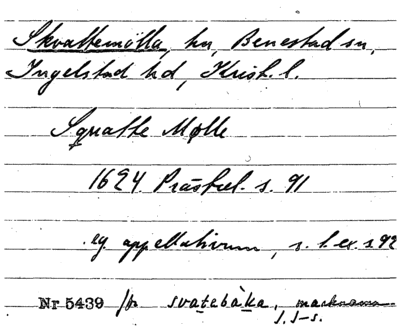 Skvattemölla, hn, Benestad sn,
Ingelstad hd, Krist. l.
Squatte Mølle
1624 Prästrel. s. 91
eg. appellativum, s. l. ex. s 92
Nr 5439 fr svatebäka,
S. J–s.